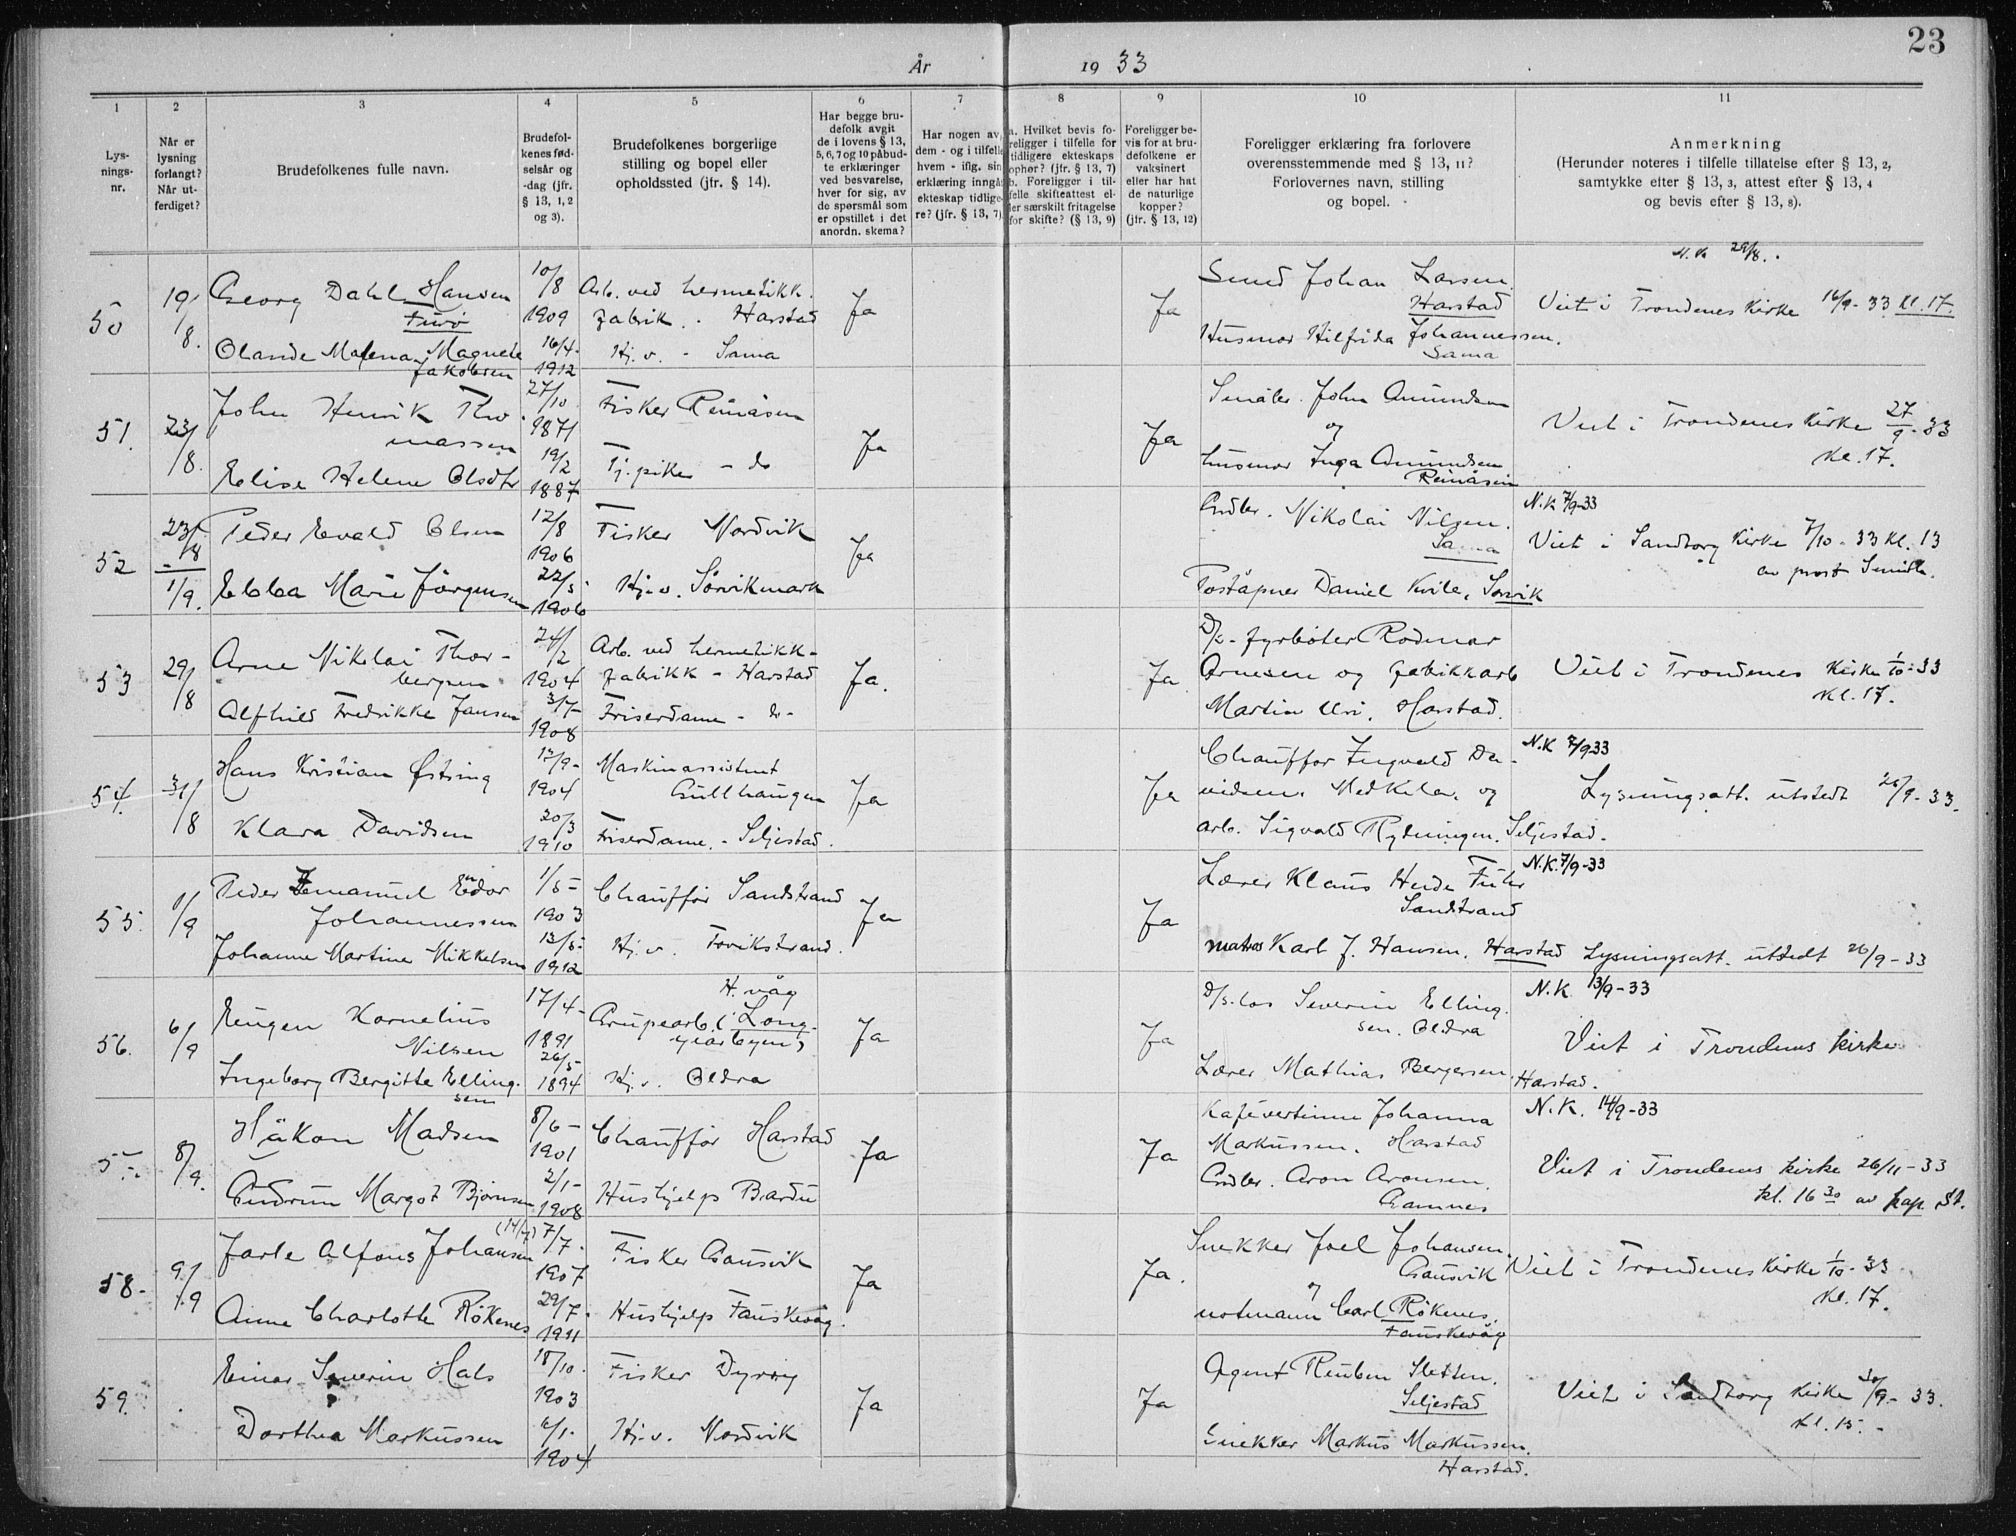 23
År 1933
1 2 3 4 5 6 7 8 9 10 11
Lysnings-nr.
Når er lysning forlangt? Når utferdiget?
Brudefolkenes fulle navn.
Brudefolkenes fødselsår og -dag (jfr. § 13, 1, 2 og 3).
Brudefolkenes borgerlige stilling og bopel eller opholdssted (jfr. § 14).
Har begge brudefolk avgit de i lovens § 13, 5, 6, 7 og 10 påbudte erklæringer ved besvarelse, hver for sig, av de spørsmål som er opstillet i det anordn. skema?
Har nogen av dem - og i tilfelle hvem - iflg. sin erklæring inngått ekteskap tidligere? (jfr. § 13, 7)
a. Hvilket bevis foreligger i tilfelle for tidligere ekteskaps ophør? (jfr. § 13, 7)
b. Foreligger i tilfelle skifteattest eller særskilt fritagelse for skifte? (§ 13, 9)
Foreligger bevis for at brudefolkene er vaksinert eller har hat de naturlige kopper? (jfr. § 13, 12)
Foreligger erklæring fra forlovere overensstemmende med § 13, 11? Forlovernes navn, stilling og bopel.
Anmerkning
(Herunder noteres i tilfelle tillatelse efter § 13, 2, samtykke efter § 13, 3, attest efter § 13, 4 og bevis efter § 13, 8).
50 19/8.
Georg Dahl Hansen
Furø
10/8 1909
Arb. ved hermetikk.
fabrik. - Harstad
Olande Malena Magnete
Jakobsen
16/4- 1912
Hj.v. - Sama
Ja Ja
Smed Johan Larsen.
Harstad
Husmor Hilfrida Johannessen.
Sama
N.K 29/8.
Viet i Trondenes Kirke 16/9-33 Kl. 17.
51. 23/8.
John Henrik Tho-
massen
27/10
Fisker Remåsen
Elise Helene Olsdtr
19/2 1887
Tj.pike - do
Ja Ja
Småbr. John Amundsen
og
husmor Inga Amundsen
Remåsen
Viet i Trondenes Kirke 27/9-33
Kl. 17.
52 23/8 - 1/9.
Peder Evald Olsen
12/8 1906
Fisker Nordvik
Ebba Marie Jörgensen
22/5 1906
Hj.v. Sörvikmark
Ja
Grdbr. Nikolai Nilsen.
Sama
Poståpner Daniel Kvile, Sørvik
N.K 7/9-33
Viet i Sandtorg Kirke 7/10-33 Kl. 13
av prost Smith.
53 29/8
Arne Nikolai Thor-
bergsen
24/2 1904
Arb. ved hermetikk-
fabrikk - Harstad
Alfhild Fredrikke Jansen
3/7- 1908
Friserdame - do-
Ja. Ja
D/s- fyrbøter Rodmar
Arnesen og fabrikkarb
Martin Uri. Harstad.
Viet i Trondenes Kirke 1/10-33
Kl. 17.
54. 31/8
Hans Kristian Østring
17/9- 1904
Maskinassistent
Gullhaugen
Klara Davidsen
20/3 1910
Friserdame. - Seljestad.
Ja Ja
Chauffør Ingvald Da-
vidsen. Medkila. og
arb. Sigvald Rydningen. Seljestad.
N.K 7/9 33
Lysningsatt. utstedt 26/9-33.
55. 1/9
Peder Emanuel Eidor
Johannessen
1/5- 1903
Chauffør Sandstrand
Johanne Martine Mikkelsen
13/5- 1912
Hj.v. Tovikstrand.
Ja Ja
Lærer Klaus Hude Führ
Sandstrand
matros Karl J. Hansen. Harstad
N.K. 7/9-33
Lysningsatt. utstedt 26/9-33
56. 6/9
Eugen Kornelius
Nilsen
17/4- 1891
H. våg
Grupearb. (Long-
yearbyen)
Ingeborg Bergitte Elling-
sen
26/5- 1894
Hj.v. Aldra
Ja Ja
D/s.los Severin Elling
sen. Aldra
Lærer Mathias Bergersen, Harstad.
N.K 13/9-33
Viet i Trondenes kirke
57. 8/9.
Håkon Madsen
8/6- 1901
Chauffør Harstad
Gudrun Margot Bjørnsen
2/1- 1908
Hushjelp Bardu
Ja Ja
Kafévertinne Johanna
Markussen. Harstad
Grdbr. Aron Aronsen.
Gamnes
N.K. 14/9-33
Viet i Trondenes kirke 26/11-33
kl. 16 30 av kap. St.
58. 9/9
Jarle Alfons Johansen
(14/7) 7/7. 1907
Fisker Gausvik
Anne Charlotte Røkenes
29/7. 1911
Hushjelp Fauskevåg.
Ja Ja.
Snekker Joel Johansen.
Gausvik
og
notmann Carl Røkenes.
Fauskevåg
Viet i Trondenes Kirke 1/10-33
Kl. 17.
59.
Einar Severin Hals
18/10. 1903
Fisker Dyrøy
Dorthea Markussen
6/1. 1904
Hj.v. Nordvik
Ja Ja
Agent Reuben Sletten.
Seljestad
Snekker Markus Markussen.
Harstad.
Viet i Sandtorg Kirke 30/9-33.
Kl. 15.-